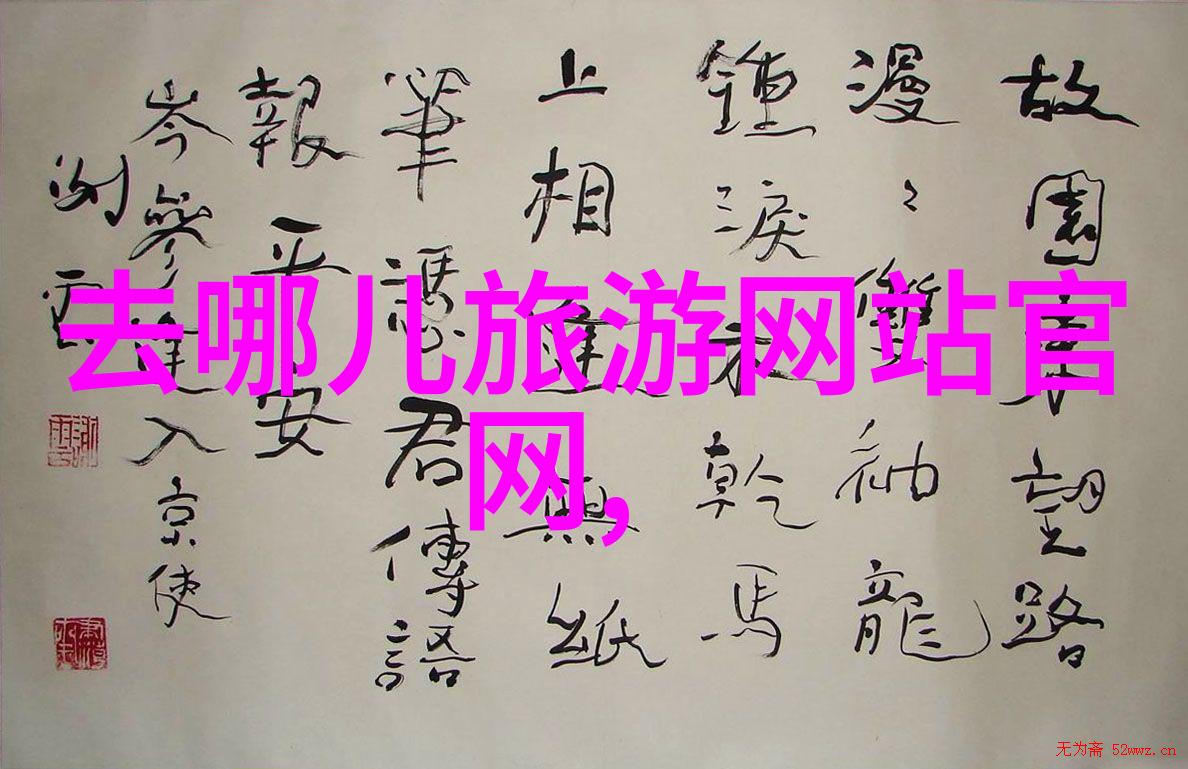 去哪儿旅游网站官
网,
故園東望路
漫〻雙袖龍
鍾淚不乾馬
上相逢無紙
筆憑君傳語
報平安
岑參逢入京使
无为斋 52wwz.cn